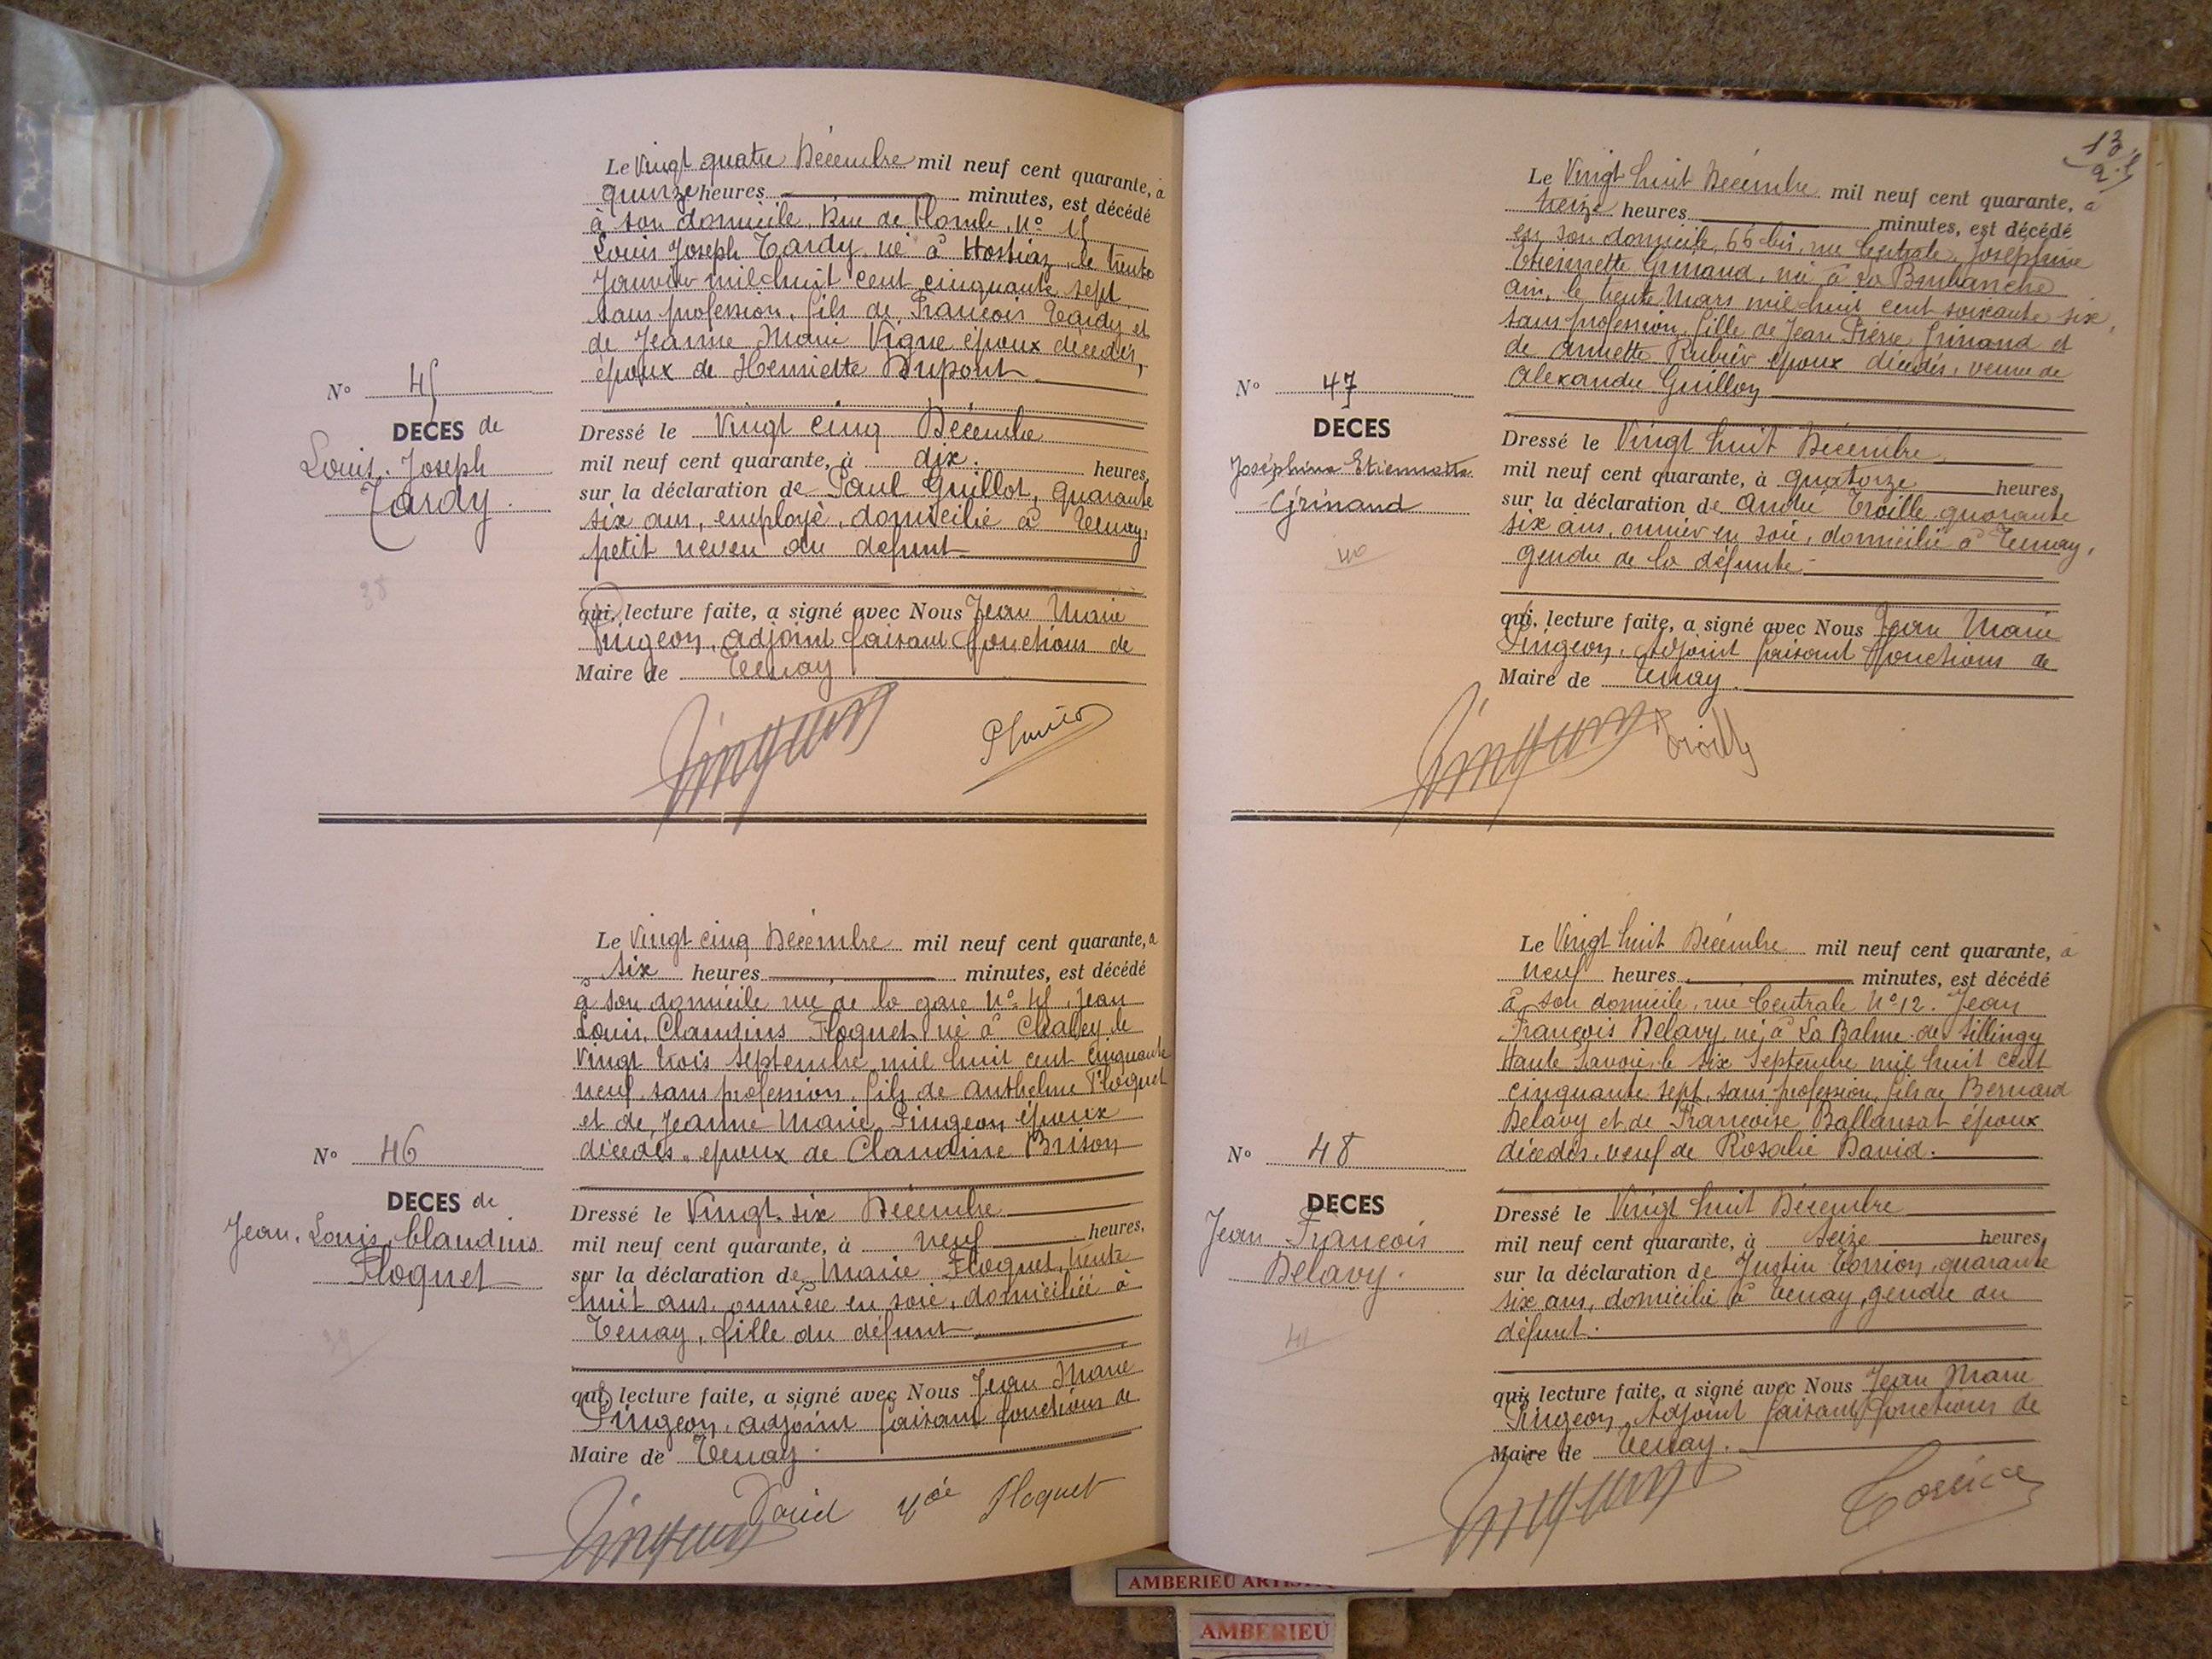 Le Vingt quatre Décembre mil neuf cent quarante, à
quinze heures minutes, est décédé
à son domicile, Rue de Plomb, N° 15
Louis Joseph Tardy, né à Hostiaz, le trente
Janvier mil huit cent cinquante sept
sans profession, fils de François Tardy et
de Jeanne Marie Vigne époux décédés,
époux de Henriette Dupont
N° 45
DECES de
Louis. Joseph
Tardy.
38
Dressé le Vingt cinq Décembre
mil neuf cent quarante, à dix. heures,
sur la déclaration de Paul Guillot, quarante
six ans, employé, domicilié à Tenay,
petit neveu du defunt
qui, lecture faite, a signé avec Nous Jean Marie
Pingeon, adjoint faisant fonctions de
Maire de Tenay.
Le Vingt cinq Décembre mil neuf cent quarante, à
six heures minutes, est décédé
à son domicile rue de la gare N° 45, Jean
Louis, Claudius Floquet, né à Chaley le
vingt trois septembre mil huit cent cinquante
neuf, sans profession, fils de Anthelme Floquet
et de Jeanne Marie Pingeon époux
décédés, époux de Claudine Brison
N° 46
DECES de
Jean. Louis. Claudius
Floquet
39
Dressé le Vingt-six Décembre
mil neuf cent quarante, à neuf heures,
sur la déclaration de Marie Floquet, trente
huit ans, ouvrière en soie, domiciliée à
Tenay, fille du défunt
qui, lecture faite, a signé avec Nous Jean Marie
Pingeon, adjoint faisant fonctions de
Maire de Tenay.
David née Floquet
13
2
Le Vingt huit Décembre mil neuf cent quarante, à
treize heures minutes, est décédé
en son domicile, 66 bis, rue Centrale, Joséphine
Etiennette Grinand, né à La Burbanche
Ain, le trente Mars mil huit cent soixante six,
sans profession, fille de Jean Pierre Grinand et
de Annette Rubier époux décédés, veuve de
Alexandre Guillon
N° 47
DECES
Joséphine Etiennette
Grinand
40
Dressé le Vingt huit Décembre
mil neuf cent quarante, à quatorze heures,
sur la déclaration de André Troille, quarante
six ans, ouvrier en soie, domicilié à Tenay,
gendre de la défunte.
qui, lecture faite, a signé avec Nous Jean Marie
Pingeon, Adjoint faisant fonctions de
Maire de Tenay.
Troille
Le Vingt huit Décembre mil neuf cent quarante, à
neuf heures minutes, est décédé
à son domicile, rue Centrale N° 12. Jean
François Delavy, né à La Balme de Sillingy
Haute Savoie, le six Septembre mil huit cent
cinquante sept, sans profession, fils de Bernard
Delavy et de Françoise Ballansat époux
décédés, veuf de Rosalie David.
N° 48
DECES
Jean François
Delavy.
41
Dressé le Vingt huit Décembre
mil neuf cent quarante, à seize heures,
sur la déclaration de Justin Torrion, quarante
six ans, domicilié à Tenay, gendre du
défunt.
qui, lecture faite, a signé avec Nous Jean Marie
Pingeon, Adjoint faisant fonctions de
Maire de Tenay.
AMBERIEU
AMBERIEU